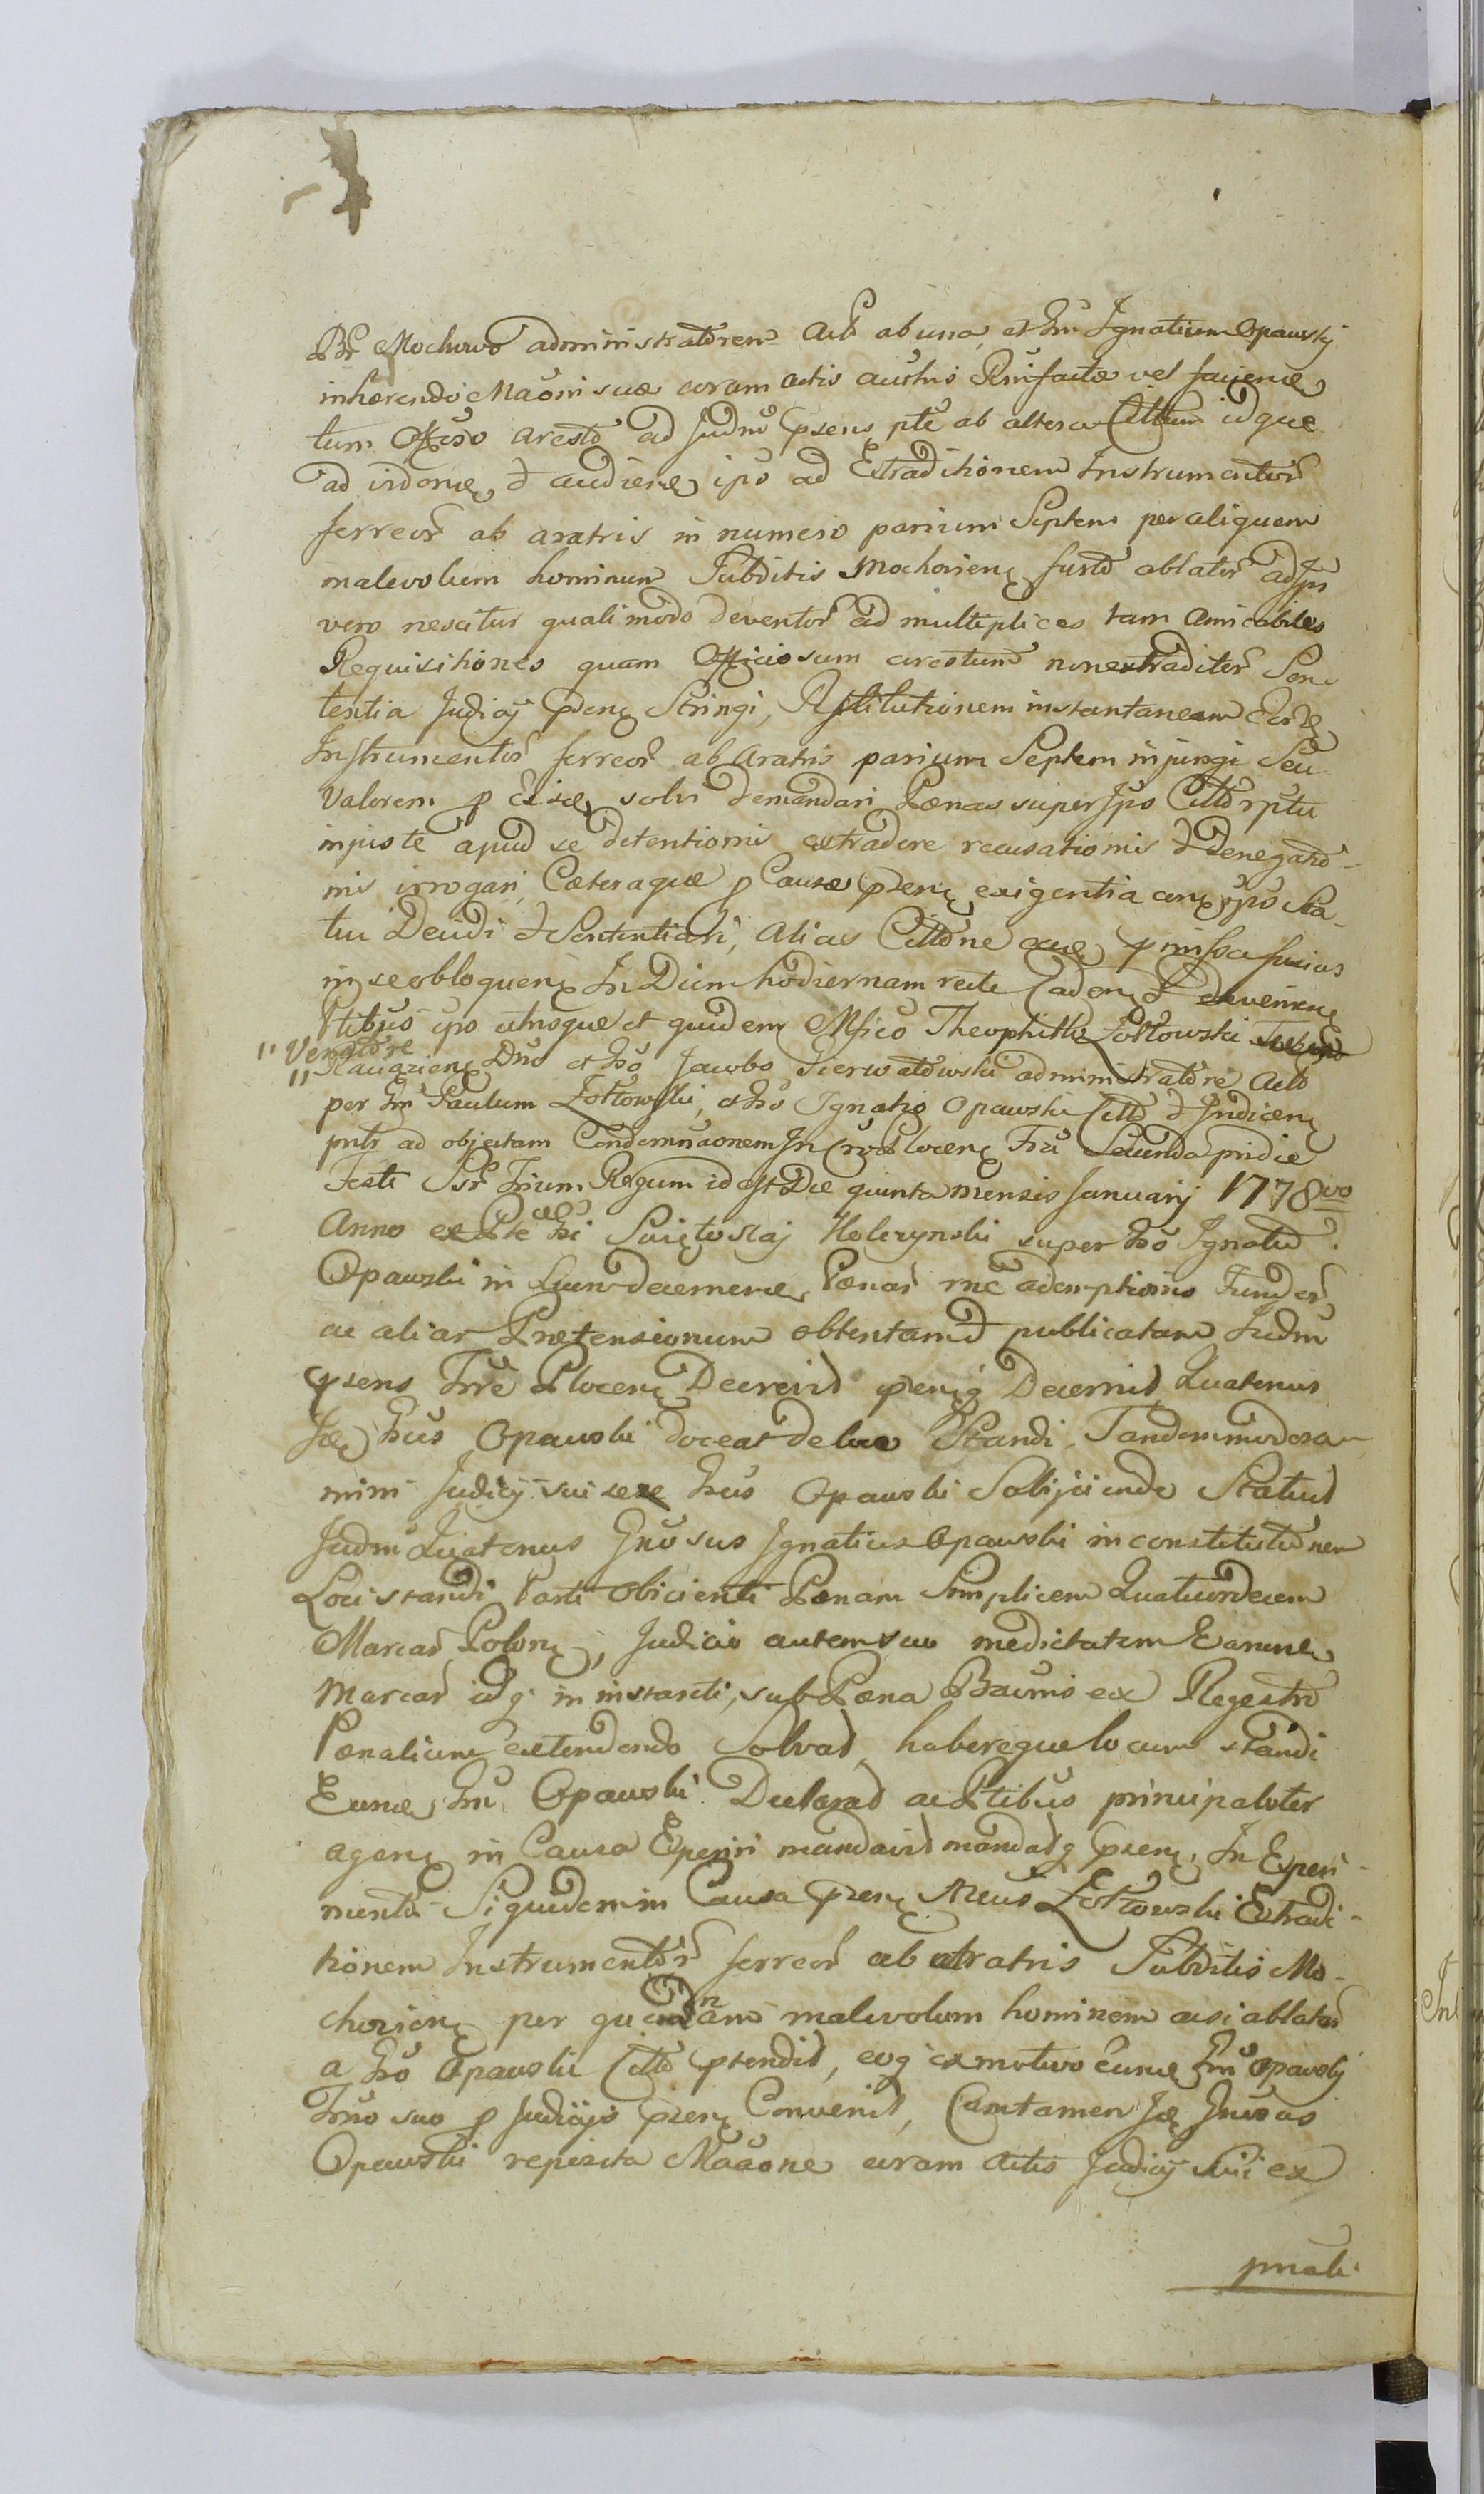 Br Mochowo administratorem Act ab una, et Gnm Ignatium Opawski
inhærendo Maoni suæ coram actis austris factæ vel
tum Officio aresto ad Judm psens pte ab altera Cittum idque
ad audien ipso ad Extraditionem Instrumentor
ferreor ab aratris in numero parium Septem per aliquem
malevolum hominem Subditis Mochovien furto ablator ad Ips
vero nescitur quali modo deventor ad multiplices tam Amicabiles
Requisitiones quam Officiosum arestum non extraditor Sen
tentia Judicij psen Stringi, Restitutionem instantaneam Eor
Instrumentor ferreor ab Aratris parium Septem injungi Seu
Valorem p Eisd solvi demandari Pænas super Ipso Citto rptu
injuste apud se detentionis extradere recusationis et denegatio-
nis irrogari, Cæteraque p Causæ psen exigentia ipso Sta-
tui Decidi et Sententiari, Alias Cittõne pmissa fusius
in se obloquen In Diem hodiernam recte Caden et devenien
Ptibus ipso utrisque et quidem Mfico Theophillo Zołtowski
" Venatore
" Raciązien Dno et Gso Jacobo Gierwatowski administratore Acto
per Gnm Paulum Zołtowski, et Gso Ignatio Opawski Citto et Judicen
pnts ad objectam Condemnaonem In Cro Plocen Fra Secunda pridie
Festi Ssr Trium Regum id est Die quinta mensis Januarij 1778vo
Anno ex Pte Gsi Swiętosłaj Holczynski super Gso Ignatio
Opawski in Lucro decernen Pænar rne ademptionis Fundor
ac aliar Prætensionum obtentam et publicatam Judm
psens Trre Plocen Decrevit psen q Decernit Quatenus
Id Gsus Opawski doceat de loco Standi, Tandem modera-
mini Judicij sui sese Gsus Opawski Subijciendo Statuit
Judm Quatenus Gnosus Ignatius Opawski in constitutionem
Loci standi Parti Obicienti Pænam Simplicem Quatuordecem
Marcar Polon, Judicio autem suo medietatem Earund
Marcar idq in instanti, sub Pæna Bannis ex Regestro
Pænalium extendendo Solvat, habereque locum standi
Eund Gnm Opawski Declarat ac Ptibus principaliter
agen in Causa Experiri mandavit mandat q psen. In Experi-
mento Siquidem in Causa psen Mcus Zołtowski Extradi-
tionem Instrumentor ferreor ab Aratris Subditis Mo-
chovien per quendam malevolum hominem acsi ablator
a Gso Opawski Citto ptendit, eoq ex motivo Eund Gnm Opawski
Trno suo p Judicijs psen Convenit, Attamen Id Gnosus
Opawski reperta Maaone coram Actis Judicij sui ex
pnali